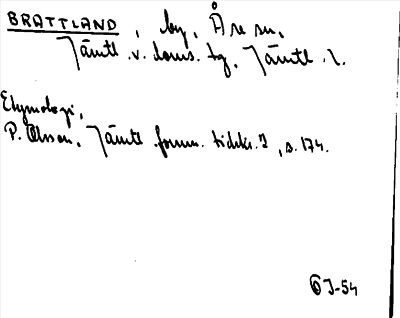 BRATTLAND, by, Åre sn,
Jämtl. v. doms. tg, Jämtl. l.
Etymologi,
P. Olsson, Jämtl. fornm. tidskr. I, s. 174.
OJ-54